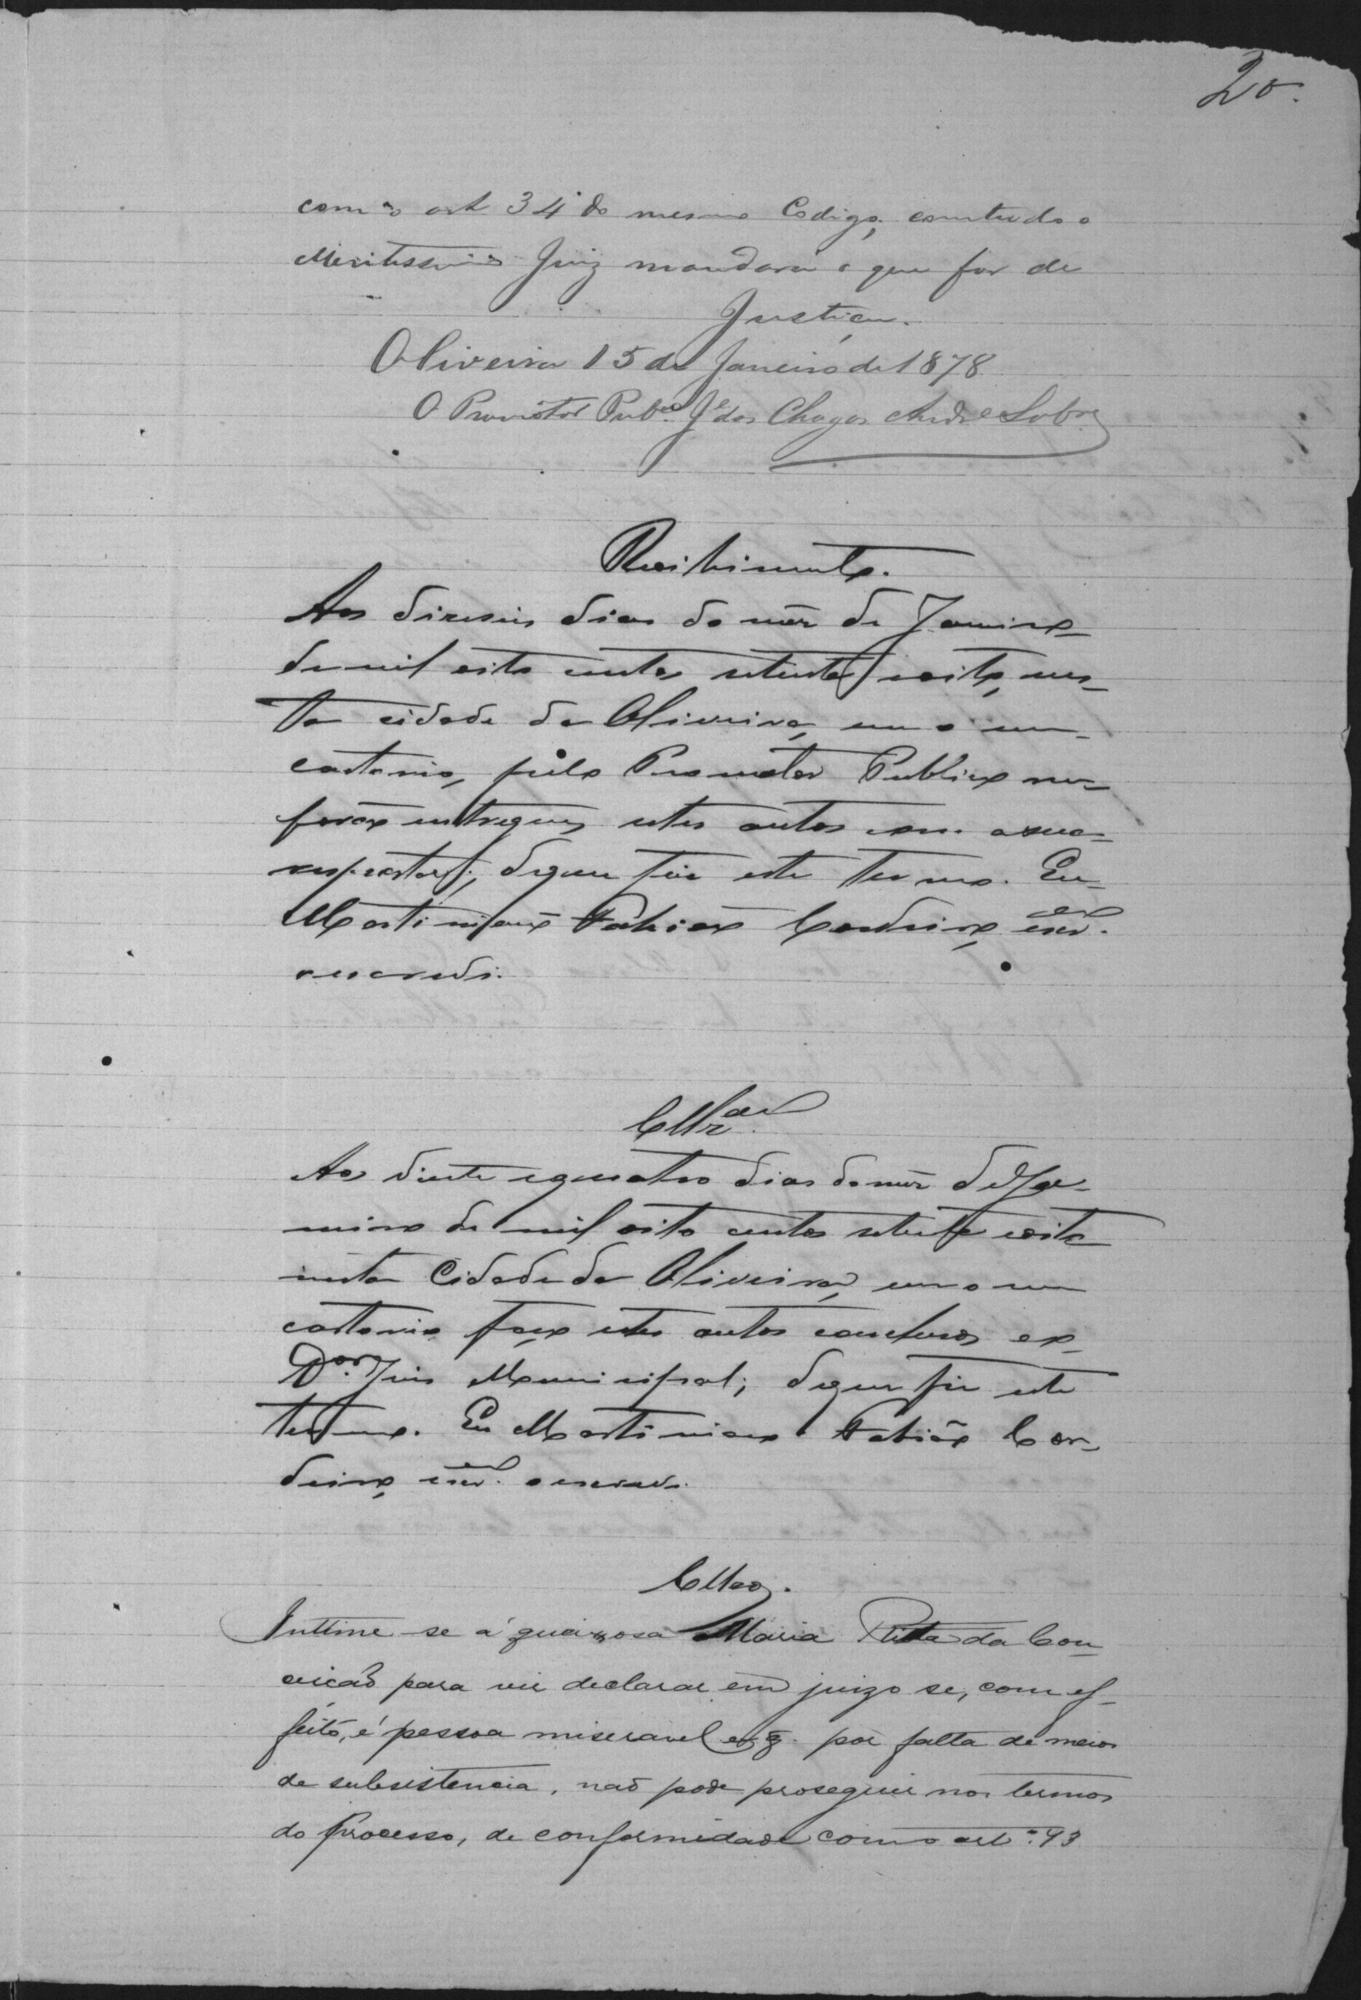 20.
com o art 34 do mesmo Codigo; comtudo o
Meritissimo Juiz mandará o que for de
Justiça.
Oliveira 15 de Janeiro de 1878
O Promotor Pubco Je das Chagas Andre Lobo
Recibimento.
Aos diseseis dias do mês de Janeiro
de mil oito centos setenta e oito, nes-
ta cidade da Oliveira, em o meu
cartorio, pelo Promotor Publico me
forão entregues estes autos com a sua
resposta; do que fiz este termo. Eu
Martiniano Fabião Cordeiro, escram.
o escrevi.
Cllzam
Aos vinte e quatro dias do mês de Ja-
neiro de mil oito centos setenta e oito
nesta Cidade da Oliveira, em o meu
cartorio faço estes autos conclusos ao
Dor. Juis Municipal; do que fiz este
termo. Eu Martiniano Fabião Cor-
deiro, escram. o escrevi.
Cllzos.
Intime-se a queixosa Maria Rita da Con-
ceicaõ para vir declarar em juizo se, com ef-
feito, é pessoa miseravel e q. por falta de meios
de subsistencia, naõ pode proseguir nos termos
do processo, de conformidade com o art.º 73